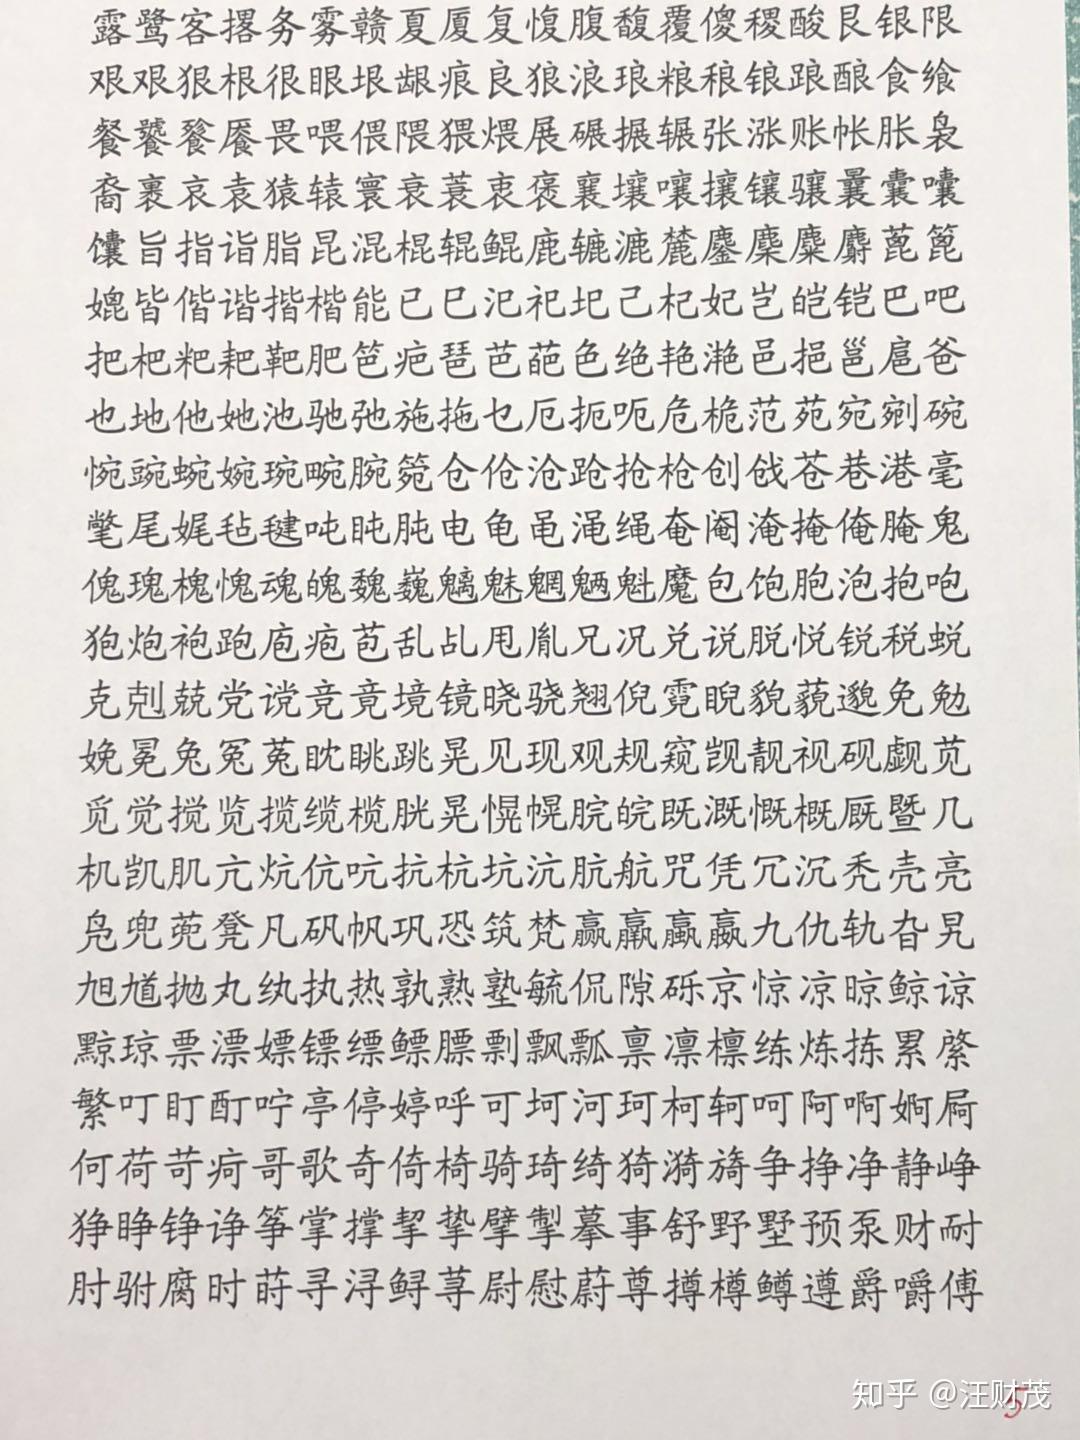 露鹭客撂务雾赣夏厦复愎腹馥覆傻稷酸艮银限
艰艰狠根很眼垠龈痕良狼浪琅粮稂锒踉酿食飨
餐饕餮餍畏喂偎隈猥煨展碾搌辗张涨账帐胀袅
裔裹哀袁猿辕寰衰蓑衷褒襄壤嚷攘镶骧曩囊囔
馕旨指诣脂昆混棍辊鲲鹿辘漉麓鏖麇麋麝蓖篦
媲皆偕谐揩楷能已巳汜祀圯己杞妃岂皑铠巴吧
把杷粑耙靶肥笆疤琶芭葩色绝艳滟邑挹邕扈爸
也地他她池驰弛施拖乜厄扼呃危桅范苑宛剜碗
惋豌蜿婉琬畹腕箢仓伧沧跄抢枪创戗苍巷港毫
氅尾娓毡毽吨盹肫电龟黾渑绳奄阉淹掩俺腌鬼
傀瑰槐愧魂魄魏巍魑魅魍魉魁魔包饱胞泡抱咆
狍炮袍跑庖疱苞乱乩甩胤兄况兑说脱悦锐税蜕
克剋兢党谠竞竟境镜晓骁翘倪霓睨貌藐邈免勉
娩冕兔冤菟眈眺跳晃见现观规窥觊靓视砚觑苋
觅觉搅览揽缆榄胱晃愰幌脘皖既溉慨概厩暨几
机凯肌亢炕伉吭抗杭坑沆肮航咒凭冗沉秃壳亮
凫兜蔸凳凡矾帆巩恐筑梵赢羸蠃嬴九仇轨旮旯
旭馗抛丸纨执热孰熟塾毓侃隙砾京惊凉晾鲸谅
黥琼票漂嫖镖缥鳔膘剽飘瓢禀凛檩练炼拣累綮
繁叮盯酊咛亭停婷呼可坷河珂柯轲呵阿啊婀屙
何荷苛疴哥歌奇倚椅骑琦绮猗漪旖争挣净静峥
狰睁铮诤筝掌撑挈挚擘掣摹事舒野墅预泵财耐
肘驸腐时莳寻浔鲟荨尉慰蔚尊撙樽鳟遵爵嚼傅
知乎 @汪财茂
5